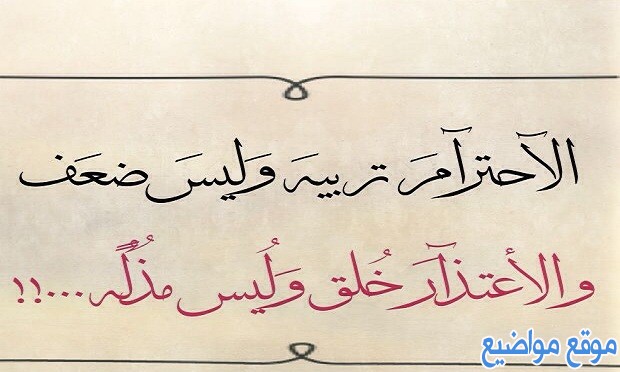 الآحترآمَ تربيہَ وَليسَ ضعَف
والأعتذآرَ خُلق وَلُيس مذُلًہ...!!
موقع مواضيع